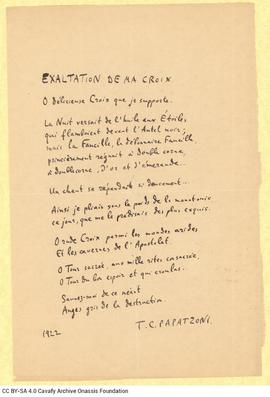 EXALTATION DE MA CROIX
O délicieuse Croix que je supporte.
La Nuit versait de l'huile aux Étoiles,
qui flamboient devant l'Autel noir;
mais la Faucille, la Faucille,
princièrement régnait à double corne,
à double corne, d'or et d'émeraude...
Un chant se répandait si doucement...
Ainsi je pliais sous le poids de la monotonie
ce jour, que me le prédisais des plus exquis.
O rude Croix parmi les mondes arides
Et les cavernes de l'Apostolat.
O Tour sacrée, aux mille rites consacrée,
O Tour du bon espoir et qui croulas.
Sauvez-moi de ce néant
Anges gris de la destruction.
1922
T. C. PAPATZONI.
CC BY-SA 4.0 Cavafy Archive Onassis Foundation